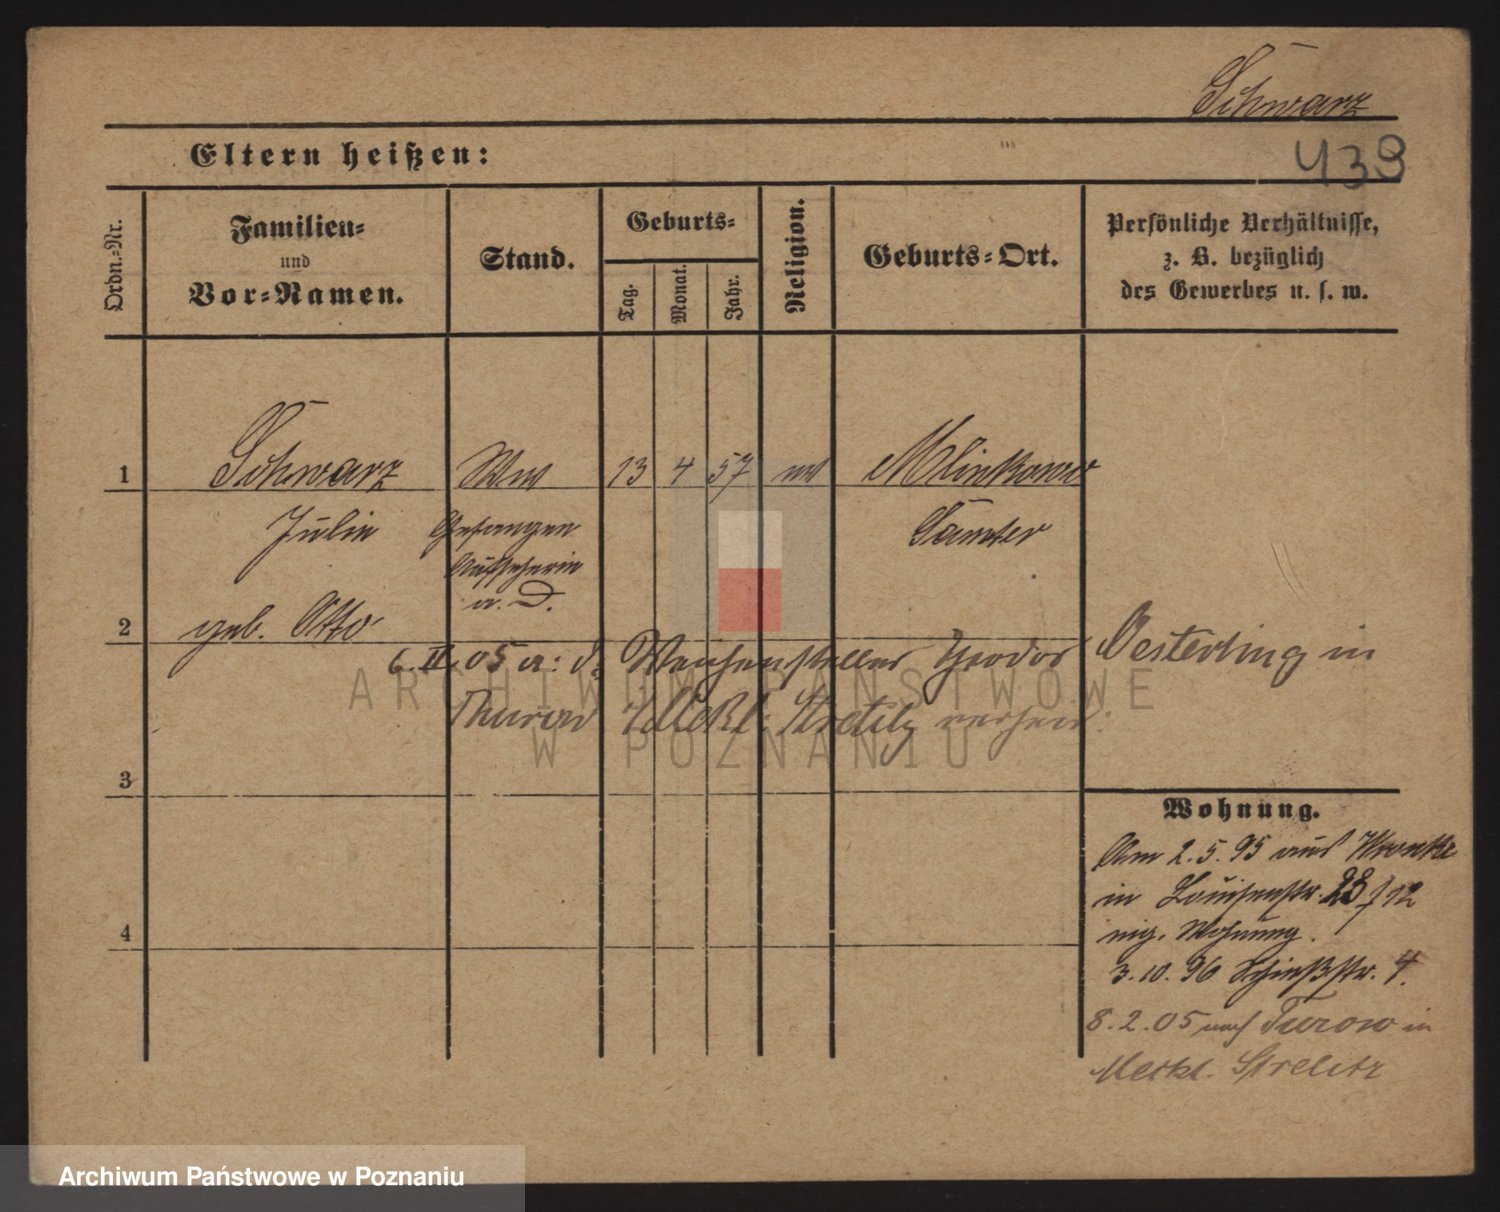 Schwarz
Eltern heißen:
439
Ordn.-Nr.
Familien-
und
Vor-Namen.
Stand.
Geburts-
Tag.
Monat.
Jahr.
Religion.
Geburts-Ort.
Persönliche Verhältnisse,
z. B. bezüglich
des Gewerbes u. s. w.
1
Schwarz
Ww
13 4 57
Mlinkowo
Julie
Gefangen
Samter
Aufseherin
a. D.
2
geb. Otto
6. II. 05 a: d. Weichensteller Theodor Oesterling in
Thurow Meckl: Strelitz verheir:
ARCHIWUM PAŃSTWOWE
W POZNANIU
3
Wohnung.
Am 2.5.95 aus Wronke
in Louisenstr. 23 f 12
eig. Wohnung.
4
3.10.96 Schießstr. 4.
8.2.05 nach Turow in
Meckl. Strelitz
Archiwum Państwowe w Poznaniu